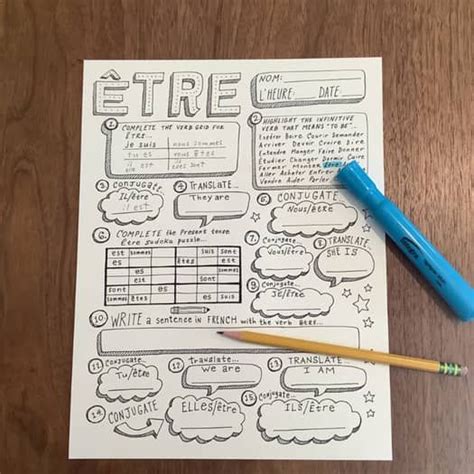 ÊTRE
NOM:
L'HEURE: DATE:
1 COMPLETE THE VERB GRID FOR
ÊTRE...
je suis nous sommes
tu es vous êtes
il est
2 HIGHLIGHT THE INFINITIVE
VERB THAT MEANS "TO BE"...
Boire Courir Demander
Arriver Devoir Croire Dire
Entendre Manger Faire Donner
Étudier Changer Dormir Caire
Fermer Montrer
Aller Acheter Entrer
Vendre Aider Parler
3 CONJUGATE...
Il/être
il est
4 TRANSLATE...
They are
5 CONJUGATE
Nous/être
6. COMPLETE the Present tense
être sudoku puzzle...
est sommes suis sont
es êtes est
es sont
est sommes
sont es
sommes êtes es suis
7. Conjugate...
Vous/être
8 TRANSLATE
SHE IS
9 Conjugate...
Je/être
10. WRITE a sentence in FRENCH with the verb être...
11 Conjugate...
Tu/être
12 Translate...
we are
13 TRANSLATE
I AM
14 CONJUGATE
ELLes/être
15 Conjugate...
ILs/Être